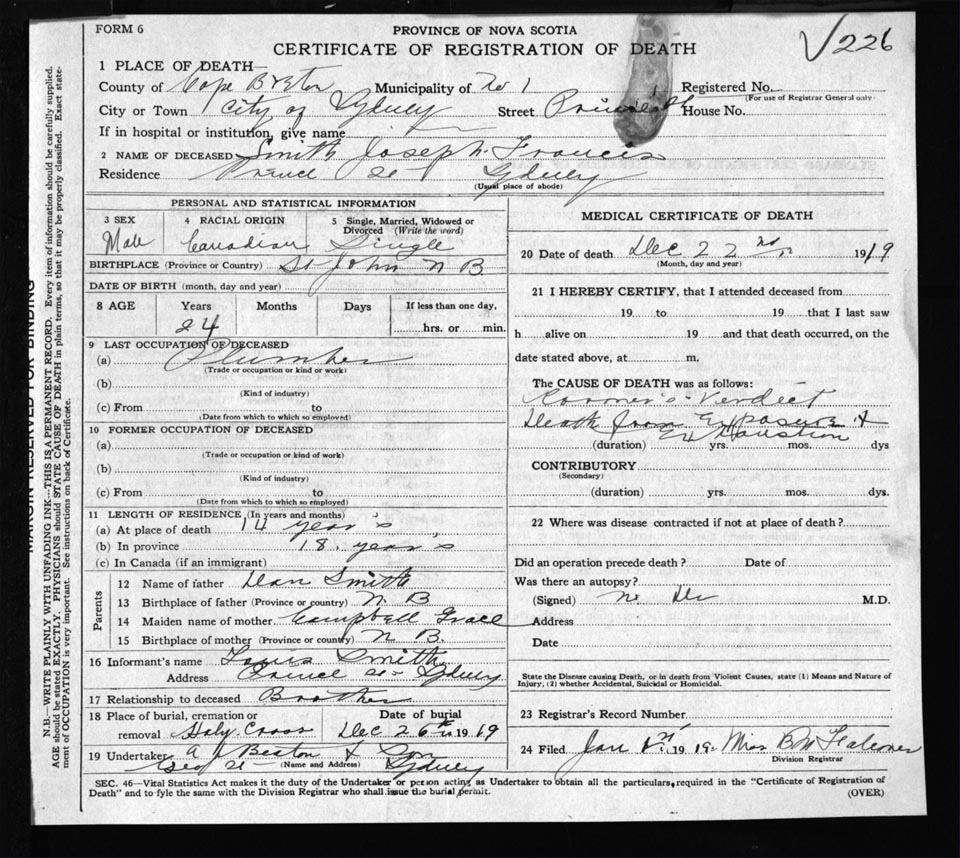 FORM 6
PROVINCE OF NOVA SCOTIA
√226
CERTIFICATE OF REGISTRATION OF DEATH
1 PLACE OF DEATH—
County of Cape Breton Municipality of No 1 Registered No.
(For use of Registrar General only
City or Town City of Sydney Street Prince House No.
If in hospital or institution, give name
2 NAME OF DECEASED Smith Joseph Francis
Residence Prince St Sydney
(Usual place of abode)
PERSONAL AND STATISTICAL INFORMATION
3 SEX 4 RACIAL ORIGIN 5 Single, Married, Widowed or
Divorced (Write the word)
Male Canadian Single
BIRTHPLACE (Province or Country) St John N B
DATE OF BIRTH (month, day and year)
8 AGE Years Months Days If less than one day,
24 hrs. or min.
9 LAST OCCUPATION OF DECEASED
(a) Plumber
(Trade or occupation or kind or work)
(b)
(Kind of industry)
(c) From to
(Date from which to which so employed)
10 FORMER OCCUPATION OF DECEASED
(a)
(Trade or occupation or kind of work)
(b)
(Kind of industry)
(c) From to
(Date from which to which so employed)
11 LENGTH OF RESIDENCE (In years and months)
(a) At place of death 14 year's
(b) In province 18. year's
(c) In Canada (if an immigrant)
Parents
12 Name of father Dean Smith
13 Birthplace of father (Province or country) N. B
14 Maiden name of mother Campbell Grace
15 Birthplace of mother (Province or country) N B.
16 Informant's name Louis Smith
Address Prince St Sydney
17 Relationship to deceased Brother
18 Place of burial, cremation or Date of burial
removal Holy Cross Dec 26th 1919
19 Undertaker A J Beaton & Son
(Name and Address) Sydney
MEDICAL CERTIFICATE OF DEATH
20 Date of death Dec 22nd 1919
(Month, day and year)
21 I HEREBY CERTIFY, that I attended deceased from
19 to 19 that I last saw
h alive on 19 and that death occurred, on the
date stated above, at m.
The CAUSE OF DEATH was as follows:
Koorner's Verdict
Death from Exposure &
Exhaustion
(duration) yrs. mos. dys
CONTRIBUTORY
(Secondary)
(duration) yrs. mos. dys.
22 Where was disease contracted if not at place of death?
Did an operation precede death? Date of
Was there an autopsy?
(Signed) No Dr M.D.
Address
Date
State the Disease causing Death, or in death from Violent Causes, state (1) Means and Nature of
Injury, (2) whether Accidental, Suicidal or Homicidal.
23 Registrar's Record Number
24 Filed Jan 19 Miss
Division Registrar
SEC. 46—Vital Statistics Act makes it the duty of the Undertaker or person acting as Undertaker to obtain all the particulars required in the "Certificate of Registration of
Death" and to fyle the same with the Division Registrar who shall issue the burial permit.
(OVER)
MARGIN RESERVED FOR BINDING
N.B.—WRITE PLAINLY WITH UNFADING INK—THIS IS A PERMANENT RECORD. Every item of information should be carefully supplied.
AGE should be stated EXACTLY. PHYSICIANS should STATE CAUSE OF DEATH in plain terms, so that it may be properly classified. Exact state-
ment of OCCUPATION is very important. See instructions on back of Certificate.